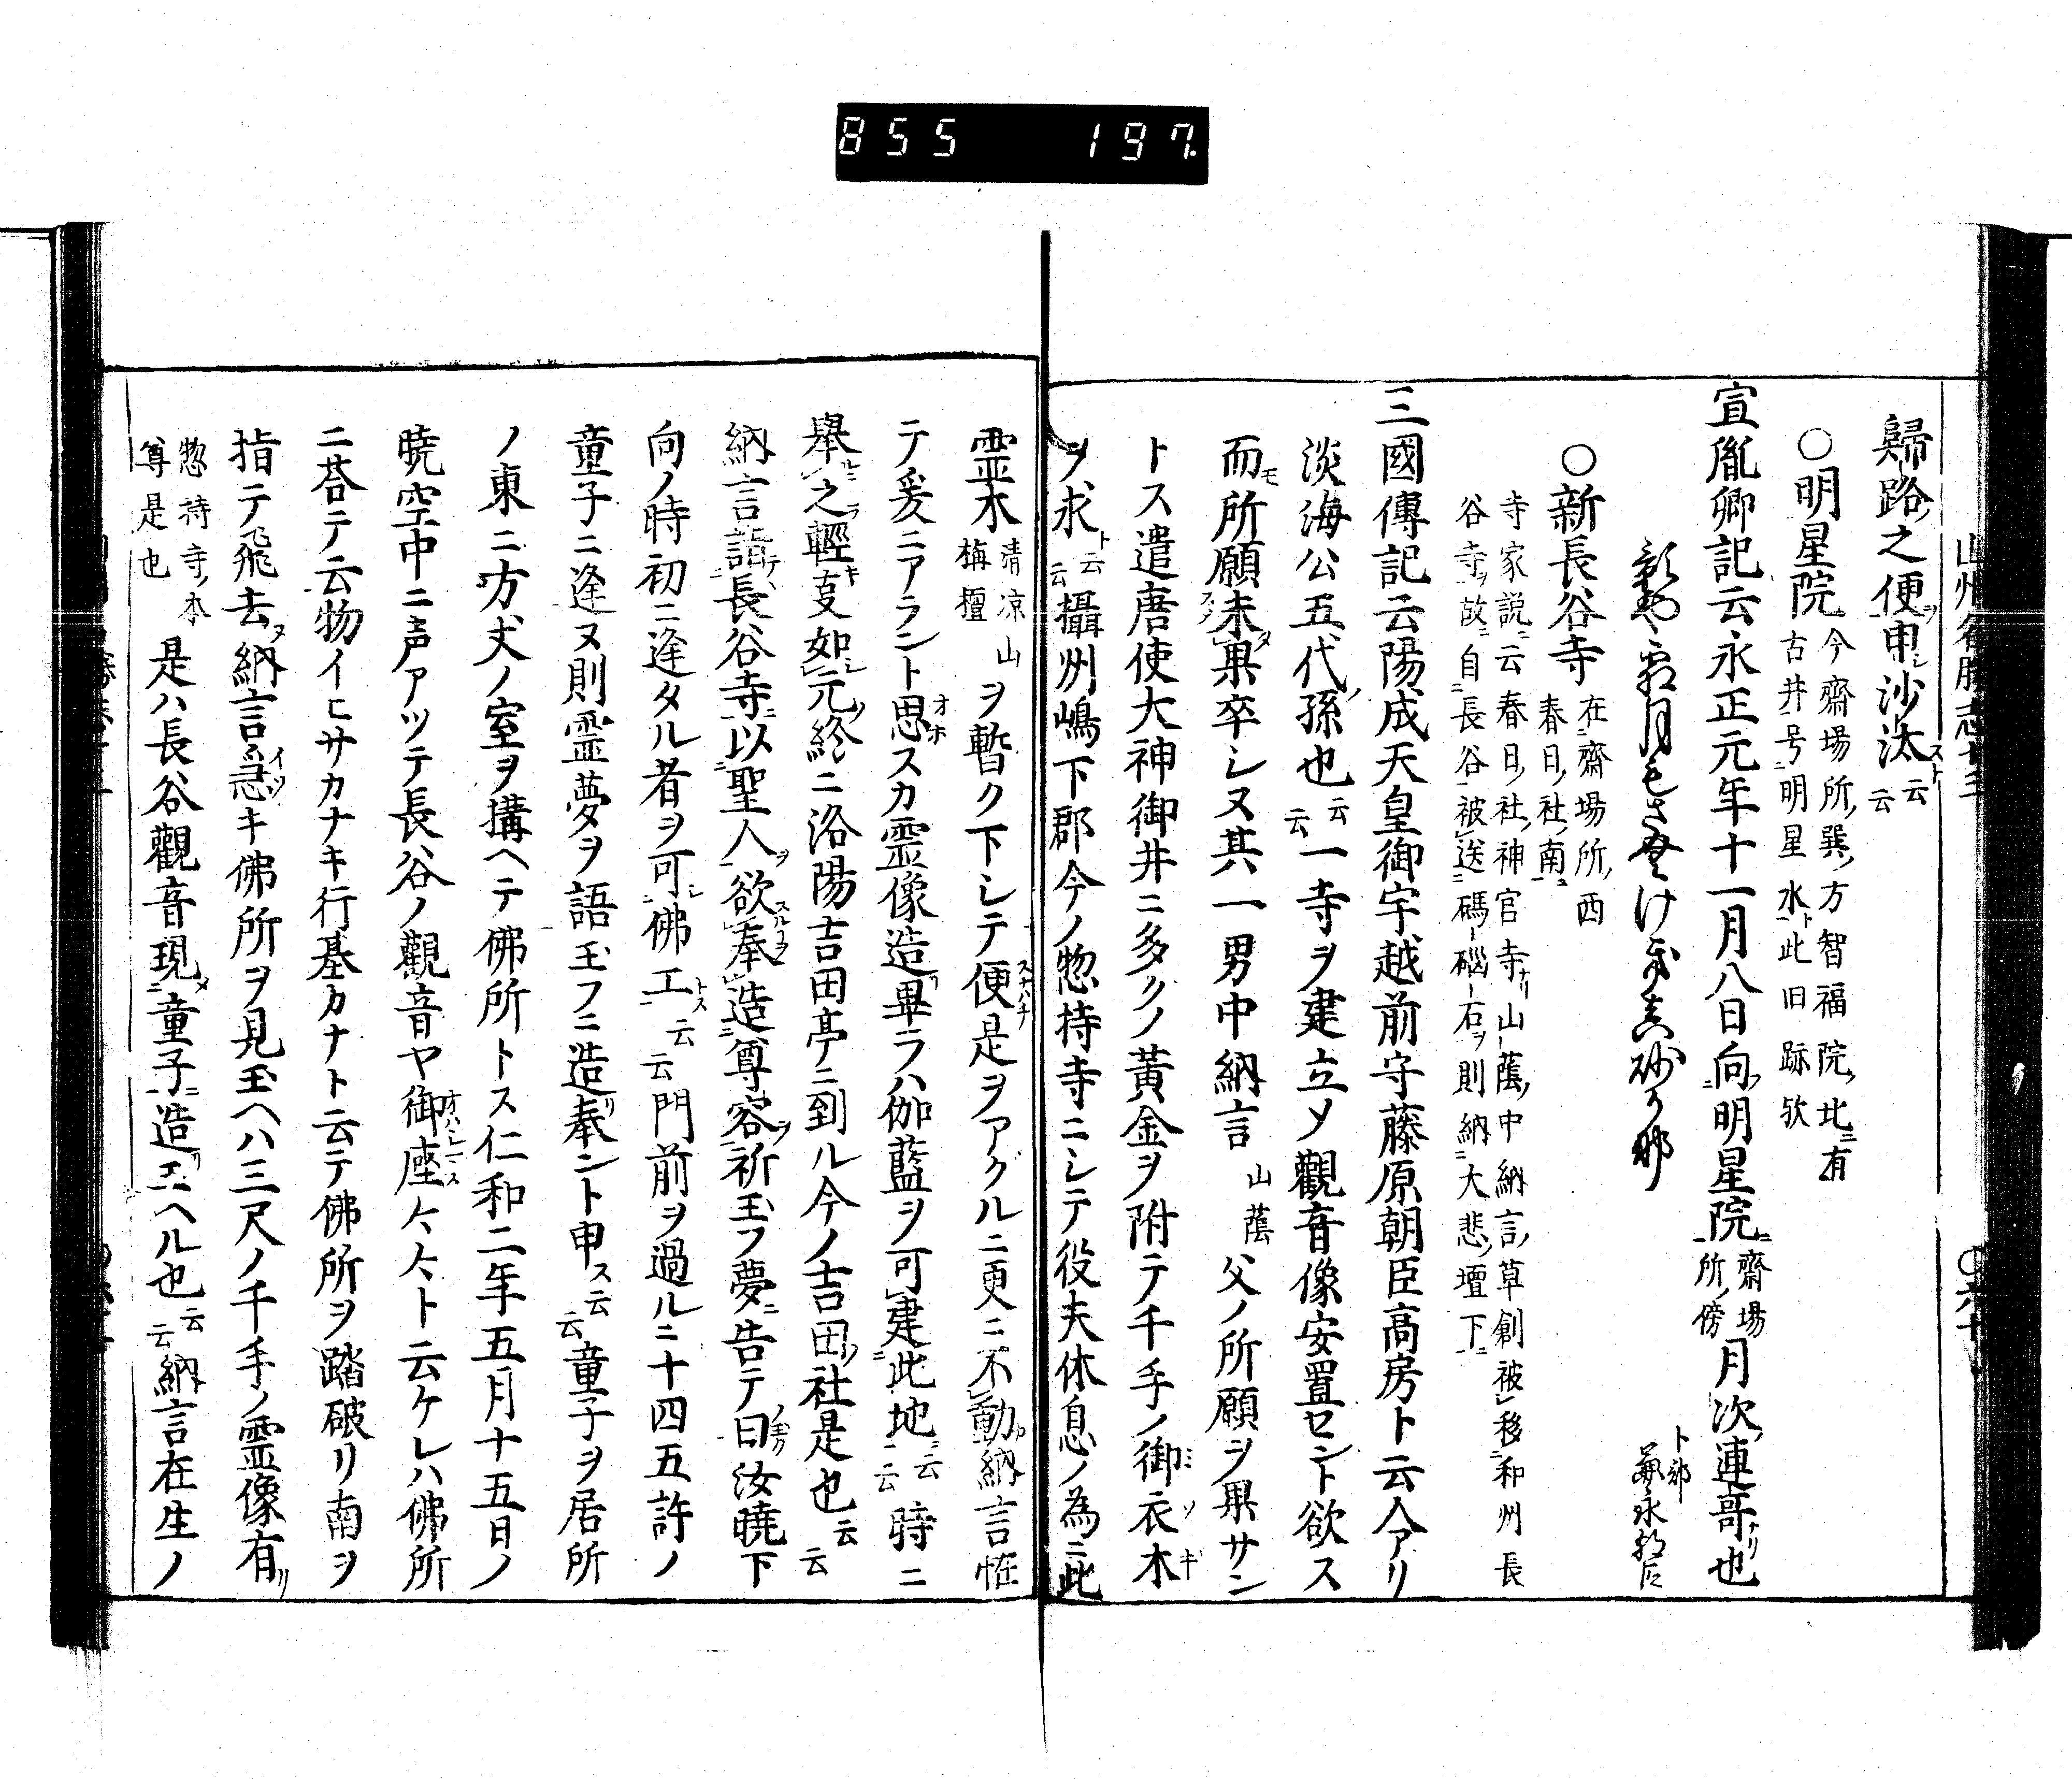 855 197.
歸路之便ヲ申シ沙汰ストト云云
○明星院 今齋場所ノ巽ノ方智福院ノ北ニ有
古井号明星水ト此旧跡欤
宣胤卿記云永正元年十一月八日向明星院齋場所ノ傍月次ノ連哥ナリ也
○新長谷寺 在齋場所ノ西
春日ノ社ノ南
寺家説ニ云春日ノ社ノ神官寺ナリ山蔭ノ中納言ノ草創被移和州長
谷寺ヲ故ニ自長谷被送碼碯ノ石ヲ則納大悲ノ壇下ニ
三國傳記云陽成天皇御宇越前守藤原朝臣高房ト云人アリ
淡海公五代ノ孫也云云一寺ヲ建立メ觀音像安置セント欲ス
而モ所願未タ果卒シヌ其一男中納言山蔭父ノ所願ヲ果サン
トス遣唐使大神御井ニ多クノ黄金ヲ附テ千手ノ御衣木
ヲ求ト云云攝州嶋下郡今ノ惣持寺ニシテ役夫休息ノ為ニ此
霊木清凉山栴檀ヲ暫ク下シテ便是ヲアグルニ更ニ不動納言恠
テ爰ニアラント思スカ霊像造畢ラハ伽藍ヲ可建此地ニ云云時ニ
擧ルニ之輕キ叓如シ元ノ終ニ洛陽吉田亭ニ到ル今ノ吉田ノ社是也云云
納言詣テ長谷寺ニ以聖人ヲ欲スルヲ奉造尊容ヲ祈玉フ夢ニ告テ曰ノ玉ク汝曉下
向ノ時初ニ逢タル者ヲ可シ佛工トス云云門前ヲ過ルニ十四五許ノ
童子ニ逢ヌ則霊夢ヲ語玉フニ造リ奉ント申ス云云童子ヲ居所
ノ東ニ方丈ノ室ヲ構ヘテ佛所トス仁和二年五月十五日ノ
曉空中ニ声アツテ長谷ノ觀音ヤ御座スト云ケレハ佛所
ニ荅テ云物イヒサカナキ行基カナト云テ佛所ヲ踏破リ南ヲ
指テ飛去ヌ納言急キ佛所ヲ見玉ヘハ三尺ノ千手ノ霊像有リ
惣持寺ノ本
尊是也 是ハ長谷觀音現メ童子ニ造リ玉ヘル也云云納言在生ノ